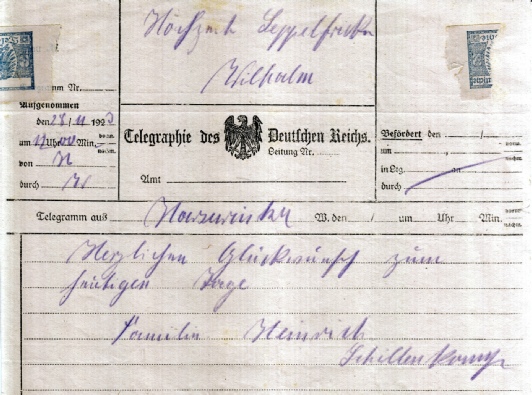 Hochzeit
Wilhelm
um Nr.
Aufgenommen
den 28/11 192
um Uhr Min. vorm. nachm.
von
durch
Telegraphie des Deutschen Reichs.
Leitung Nr.
Amt
Befördert den /
um , vorm. nachm.
in Ltg. an
durch
Telegramm aus W. den / um Uhr Min. vorm. nachm.
Herzlichen Glückwunsch zum
heutigen Tage
Familie Heinrich
Schillenkamp